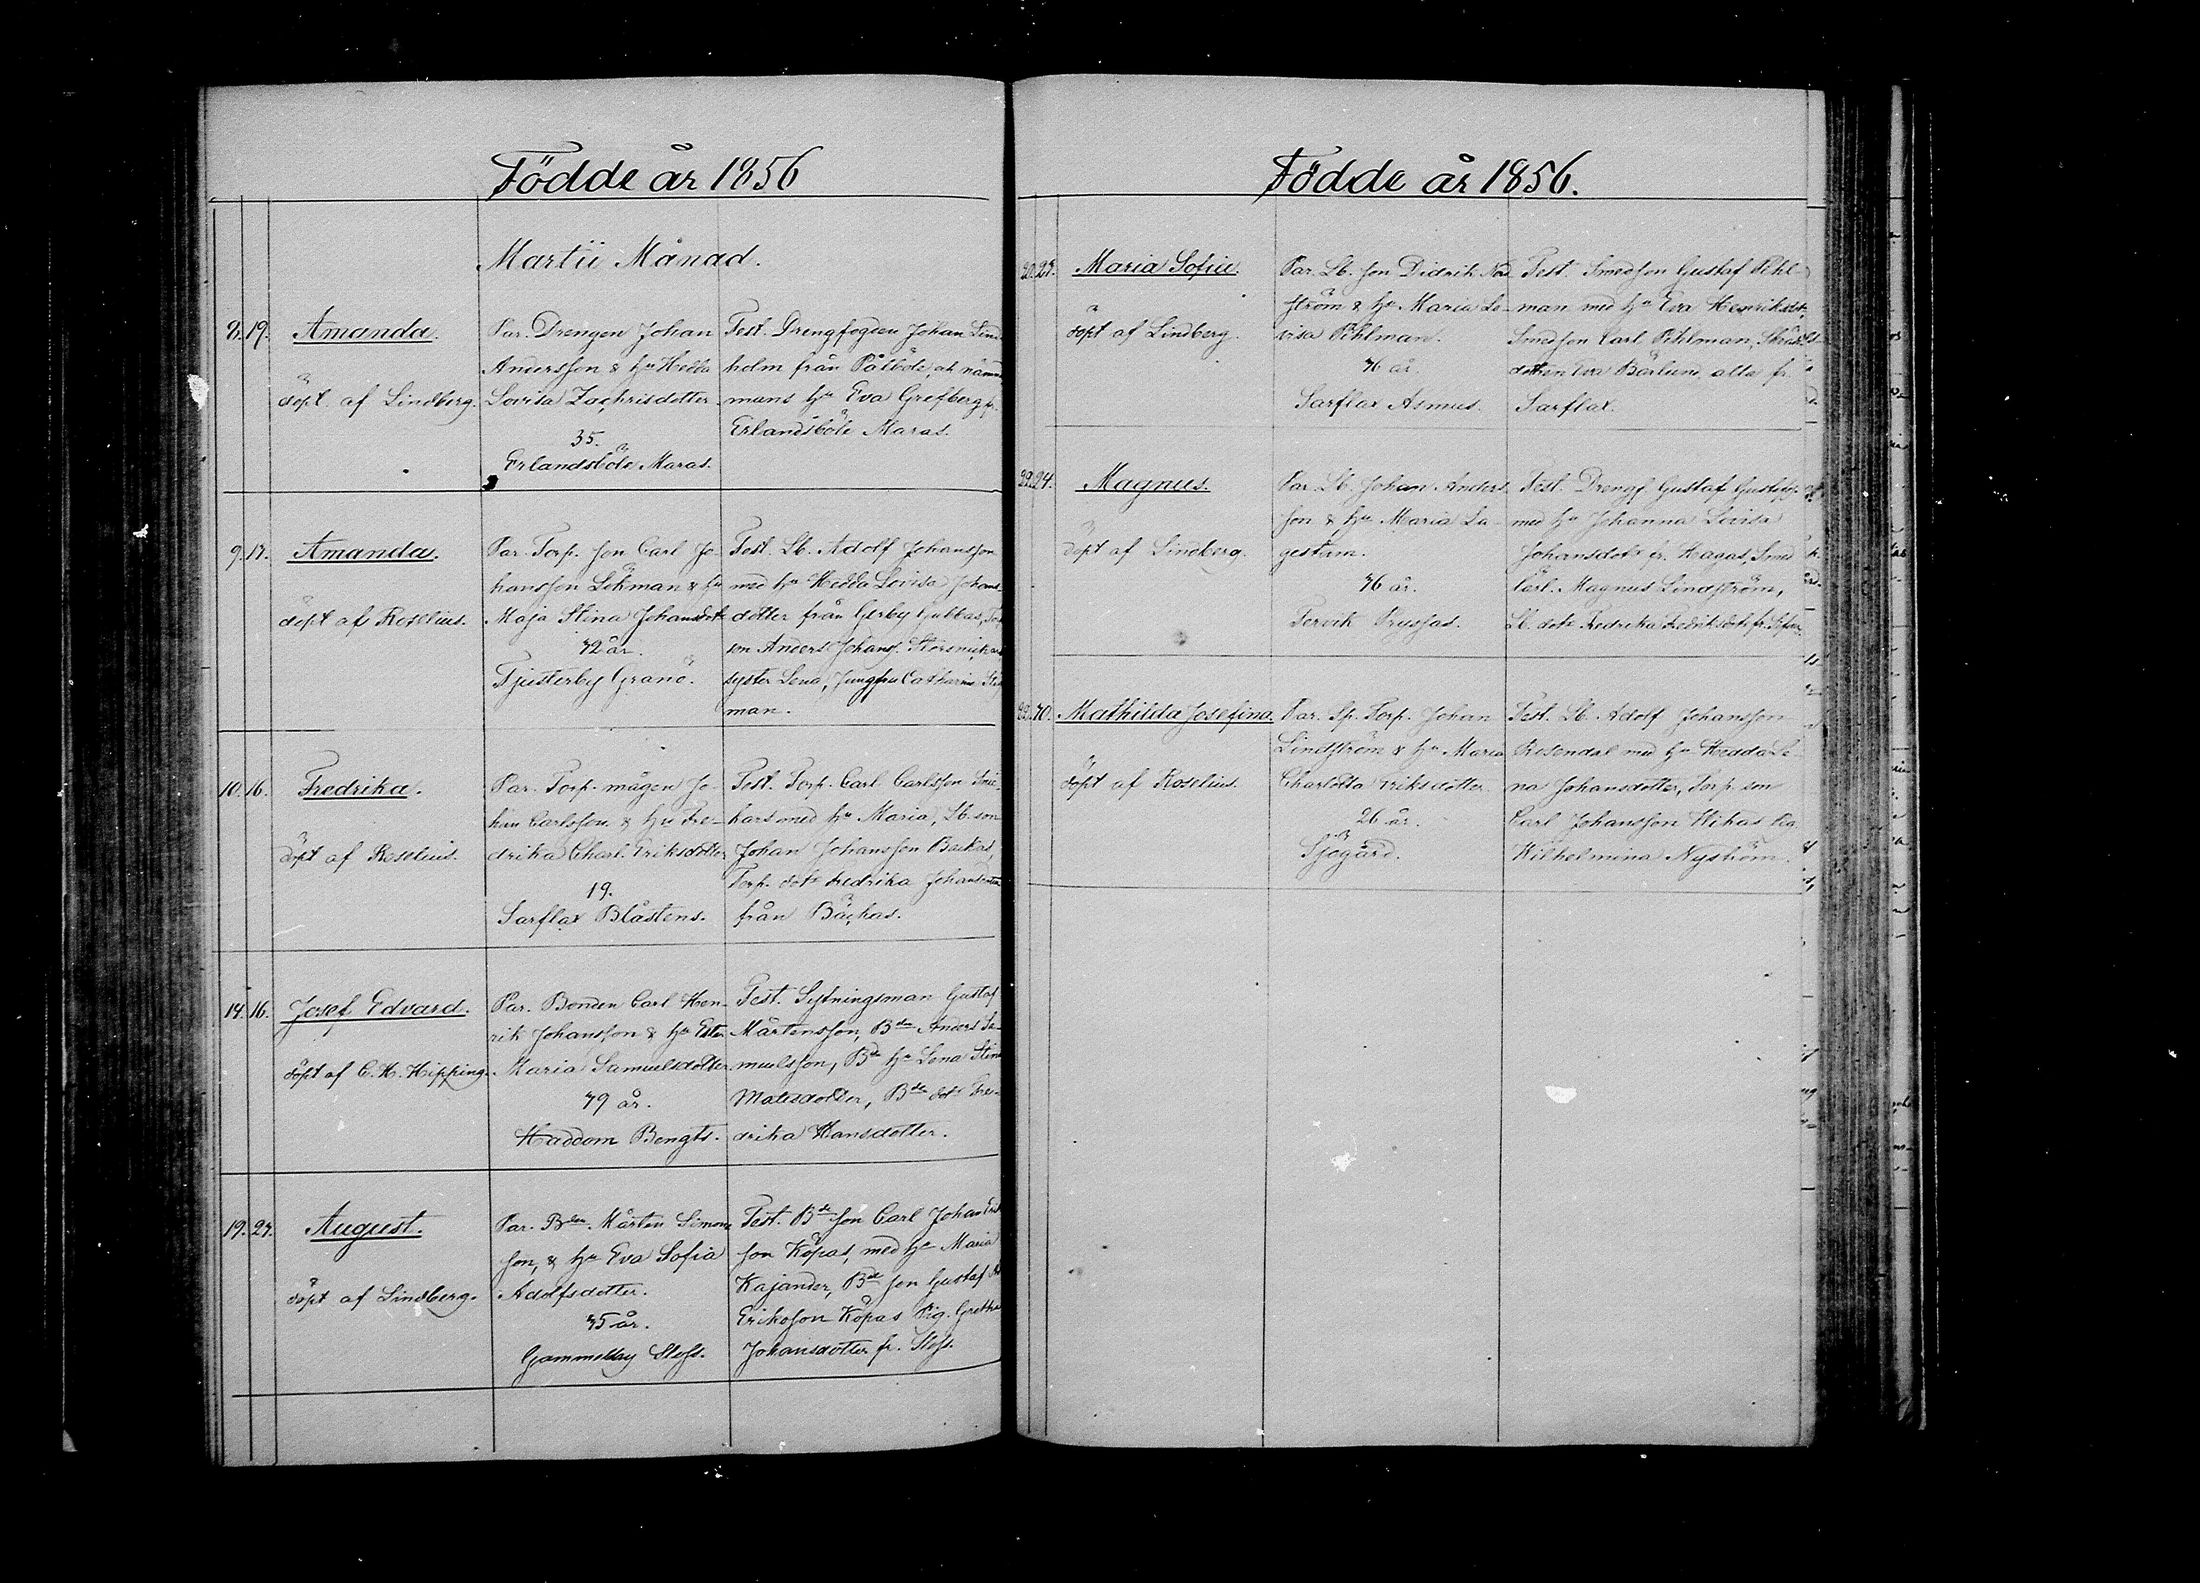 Födde år 1856
Martii Månad.
8. 19. Amanda.
döpt af Lindberg.
Par. Drengen Johan
Andersson & hu Hedda
Lovisa Zachrisdotter
35.
Erlandsböle Maras.
Test. Drengfogden Johan Lind
holm från Pålböle, ok nämn
mans hu Eva Grefberg fr.
Erlandsböle Maras.
9. 17. Amanda.
döpt af Roselius.
Par. Torp. son Carl Jo-
hansson Lökman & hu
Maja Stina Johansdotr
32 år.
Tjusterby Granö.
Test. Lb. Adolf Johansson
med hu Hedda Lovisa Johans
dotter från Gerby Gubbas,
son Anders Johans.
syster Lena, Jungfru Catharina
man.
10. 16. Fredrika.
döpt af Roselius.
Par. Torp. mågen Jo-
han Carlsson & hu Fre-
drika Charl. Eriksdotter
19.
Sarflax Blåstens.
Test. Torp. Carl Carlsson
med hu Maria, Lb. son
Johan Johansson Backas,
Torp. dotr Fredrika Johansdotter
från Bäckas.
14. 16. Josef Edvard.
döpt af C. H. Hipping.
Par. Bonden Carl Hen-
rik Johansson & hu Ester
Maria Samuelsdotter
39 år.
Haddom Bengts.
Test. Sytningsman Gustaf
Mårtensson, Bden Anders Sa-
muelsson, Bde hu Lena Stina
Matsdotter, Bde dotr Fre-
drika Hansdotter.
19. 27. August.
döpt af Lindberg.
Par. Bden. Mårten Simons
son, & hu Eva Sofia
Adolfsdotter.
35 år.
Gammelby Slefs.
Test. Bde son Carl Johan
son Köpas, med hu Maria
Kajander, Bde son Gustaf
Eriksson Köpas Pig. Gretha
Johansdotter fr. Slefs.
Födde år 1856.
20. 23. Maria Sofia.
döpt af Lindberg.
Par. Lb. son Didrik
ström & hu Maria Lo-
visa Pihlman.
36 år.
Sarflax Asmus.
Test. Smedson Gustaf Pihl-
man med hu Eva Henriksdotr,
Smedson Carl Pihlman,
dottren Eva Bärlund alla fr.
Sarflax.
22. 24. Magnus.
döpt af Lindberg.
Par. Lb. Johan Anders
son & hu Maria La-
gestam.
36 år.
Tervik Pryssas.
Test. Drengf. Gustaf
med hu Johanna Lovisa
Johansdotr fr. Hagas, Smed
lärl. Magnus Lindström,
Lb. dotr Fredrika Fredriksdotr fr.
22. 30. Mathilda Josefina.
döpt af Roselius.
Par. Sp. Torp. Johan
Lindström & hu Maria
Charlotta Eriksdotter
26 år.
Sjögård.
Test. Lb. Adolf Johansson
Rosendal med hu Hedda Le-
na Johansdotter, Torp. son
Carl Johansson Pig.
Wilhelmina Nyström.